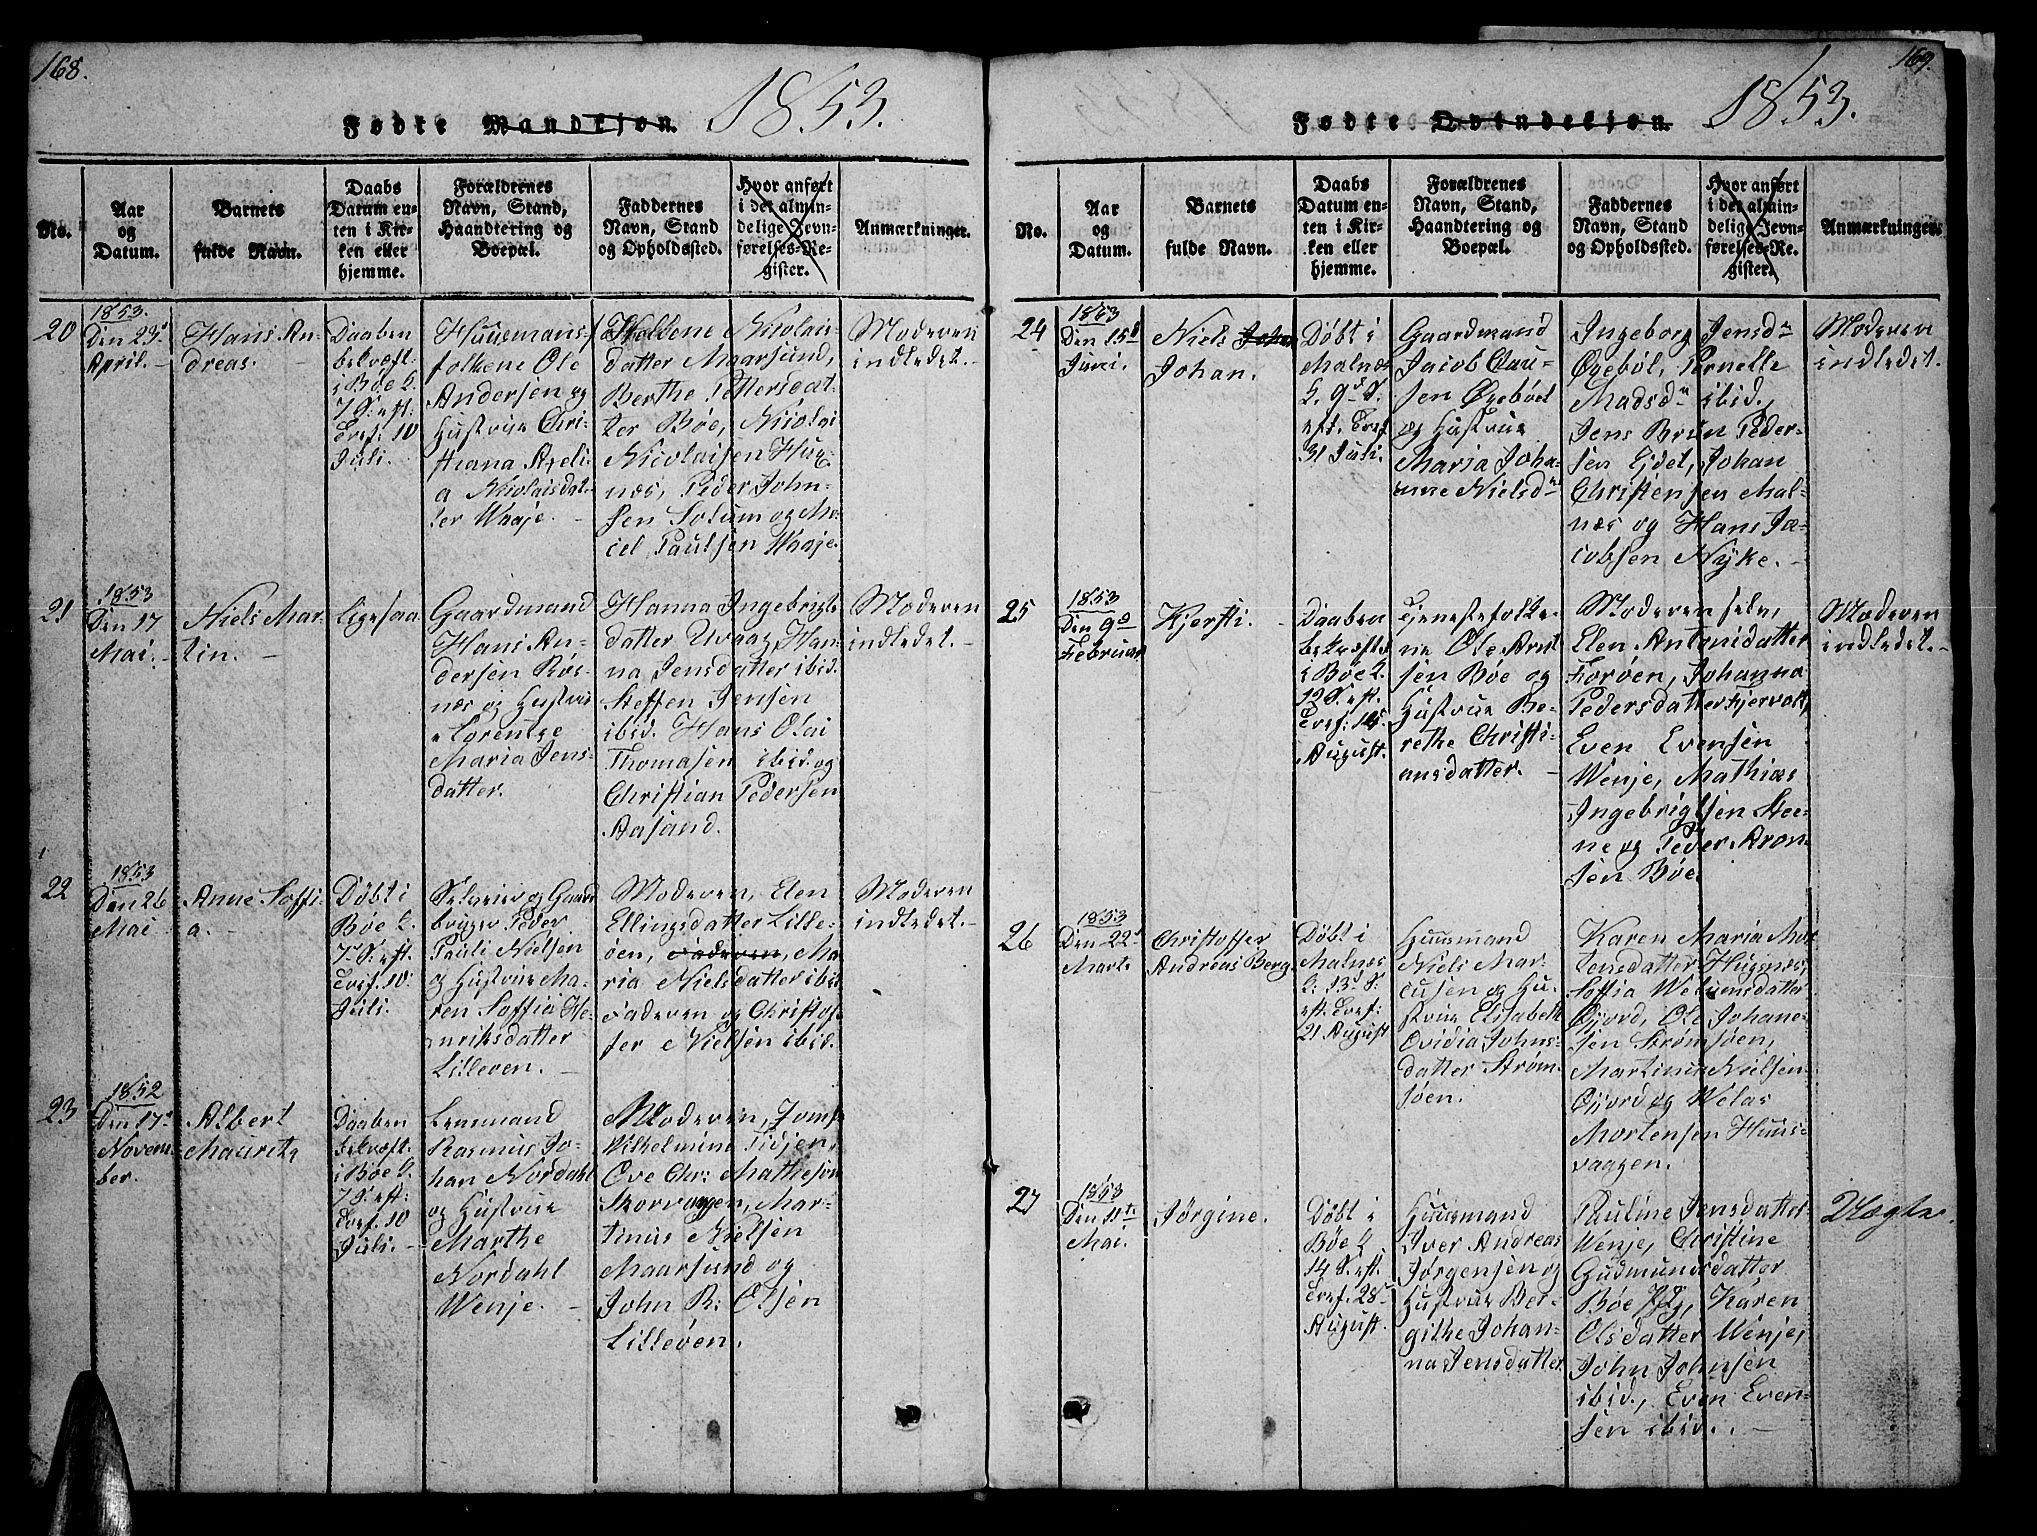 168.
Fødte Mandkjøn. 1853.
No.
Aar
og
Datum.
Barnets
fulde Navn.
Daabs
Datum en-
ten i Kir-
ken eller
hjemme.
Forældrenes
Navn, Stand,
Haandtering og
Boepæl.
Faddernes
Navn, Stand
og Opholdssted.
Hvor anført
i det almin-
delige Jevn-
førelses-Re-
gister.
Anmærkninger.
20
1853.
Den 23d
April.
Hans An-
dreas.
Daaben
bekræft.
i Bøe K.
7 S. eft.
Tref. 10
Juli.
Huusmans-
folkene Ole
Andersen og
Hustrue Chri-
stiana Axeli-
a Nicolaisdat-
ter Waaje.
Nicolai-
datter Maarsund,
Berthe Pettersdat-
ter Bøe, Nicolai
Nicolaisen Hug-
næs, Peder John-
sen Solum og
Paulsen Waaje.
Moderen
indledet.
21
1853
Den 17
Mai.
Niels Mar-
tin.
ligesaa
Gaardmand
Hans An-
dersen Røs-
næs og Hustrue
Lorentse
Maria Jens-
datter.
Hanna Ingebrigts
datter Uvaag, Han-
na Jensdatter ibid.
Steffen Jensen
ibid. Hans Olai
Thomasen ibid. og
Christian Pedersen
Aasand.
Moderen
indledet.
22
1853
Den 26
Mai
Anne Soffi-
a.
Døbt i
Bøe K.
7 S. eft.
Tref. 10
Juli.
Selveier og Gaard
bruger Peder
Pauli Nielsen
og Hustrue Ma-
ren Soffia He-
nriksdatter
Lilleøen.
Moderen, Elen
Ellingsdatter Lille-
øen, Faderen, Ma-
ria Nielsdatter ibid.
Faderen og Christof-
fer Nielsen ibid.
Moderen
indledet.
23
1852
Den 17d
Novem-
ber.
Albert
Mauritz
Daaben
bekræft.
i Bøe K.
7 S. eft:
Tref. 10
Juli.
Lensmand
Rasmus Jo-
han Nordahl
og Hustrue
Marthe
Nordahl
Wenje.
Moderen, Jomf.
Wilhelmine Tidjen,
Ove Chr: Mathesen
Skorvaagen, Mar-
tinus Nielsen
Maarsund og
John R: Olsen
Lilleøen.
169.
Fødte Qvindekjøn. 1853.
No.
Aar
og
Datum.
Barnets
fulde Navn.
Daabs
Datum en-
ten i Kir-
ken eller
hjemme.
Forældrenes
Navn, Stand,
Haandtering og
Boepæl.
Faddernes
Navn, Stand
og Opholdssted.
Hvor anført
i det almin-
delige Jevn-
førelses-Re-
gister.
Anmærkninger.
24
1853
Den 15d
Juni.
Niels Johan
Johan.
Døbt i
Malnæs
K. 9d S.
eft. Tref
31 Juli.
Gaardmand
Jacob Clau-
sen Øxebøl
og Hustrue
Maria Joha-
nne Nielsdr
Ingeborg Jensdr
Øxebøl, Pernelle
Madsdr ibid.,
Jens Brun Peder-
sen Eidet, Johan
Christensen Mal-
næs og Hans Ja-
cobsen Nyke.
Moderen
indledet.
25
1853
Den 9d
Februar
Kjersti.
Daaben
bekræftet
i Bøe K.
12 S. eft.
Tref:
August.
Tjenestefolke-
ne Ole Arnt
sen Bøe og
Hustrue Be-
rethe Christi-
ansdatter.
Moderen selv,
Elen Antonisdatter
Forøen, Johanna
Pedersdatter Fjervoll,
Even Evensen
Wenje, Mathias
Ingebrigtsen Stee-
ne og Peder Aron-
sen Bøe.
Moderen
indledet.
26
1853
Den 22d
Marts
Christoffer
Andreas Berg.
Døbt i
Malnes
K: 13d S:
eft. Tref:
21 August
Huusmand
Niels Mar-
cusen og Hu-
strue Elisabeth
Ovidia Johns-
datter Strøm-
søen.
Karen Maria Mor
tensdatter Hugnæs,
Soffia datter
Gjord, Ole Johane-
sen Strømsøen,
Martinus Nielsen
Gjord og Welas
Mortensen Huus-
vaagen.
27
1853
Den 11te
Mai.
Jørgine.
Døbt i
Bøe K
14 S. eft.
Tref. 28
August.
Huusmand
Iver Andreas
Jørgensen og
Hustrue Ber-
githe Johan-
na Jensdatter
Pauline Jensdatter
Wenje, Christine
Gudmundsdatter
Bøe Karen
Olsdatter Wenje,
John Johnsen
ibid., Even Even-
sen ibid.
Uægte.